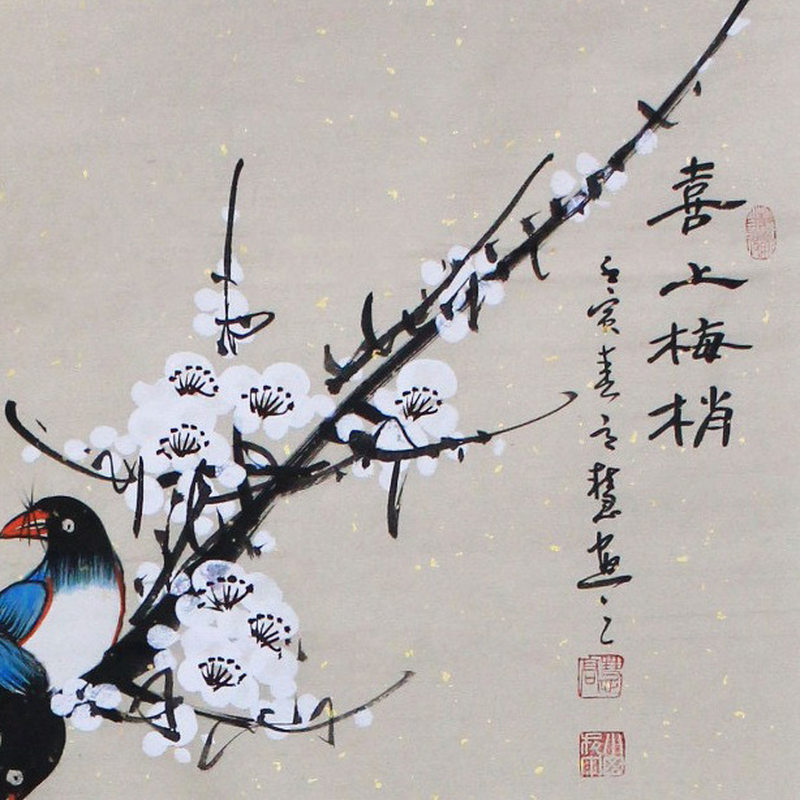 喜上梅梢
壬寅春高慧画